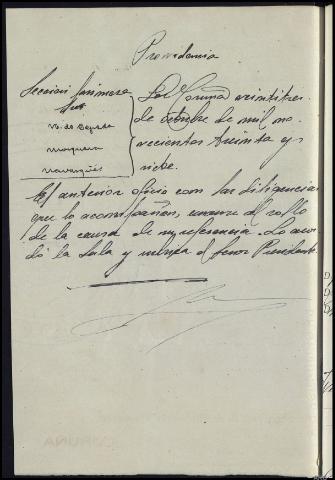 Providencia
Sección primera
Sres
Vº. de Cepeda
Mosquera
Navarqués
La Coruña veintitres
de octubre de mil no-
vecientos treinta y
siete.
El anterior oficio con las diligencias
que lo acompañan, unanse al rollo
de la causa de su referencia. Lo acor-
dó la Sala y rubrica el Señor Presidente